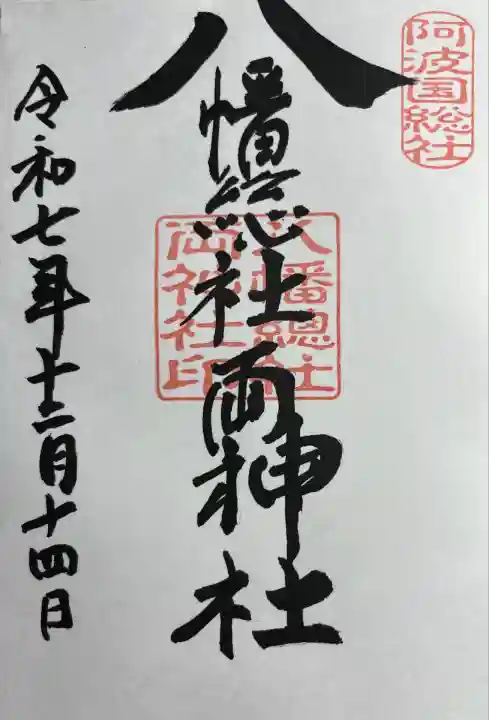 阿波国総社
八幡總社両神社
八幡總社
両神社印
令和七年十二月十四日